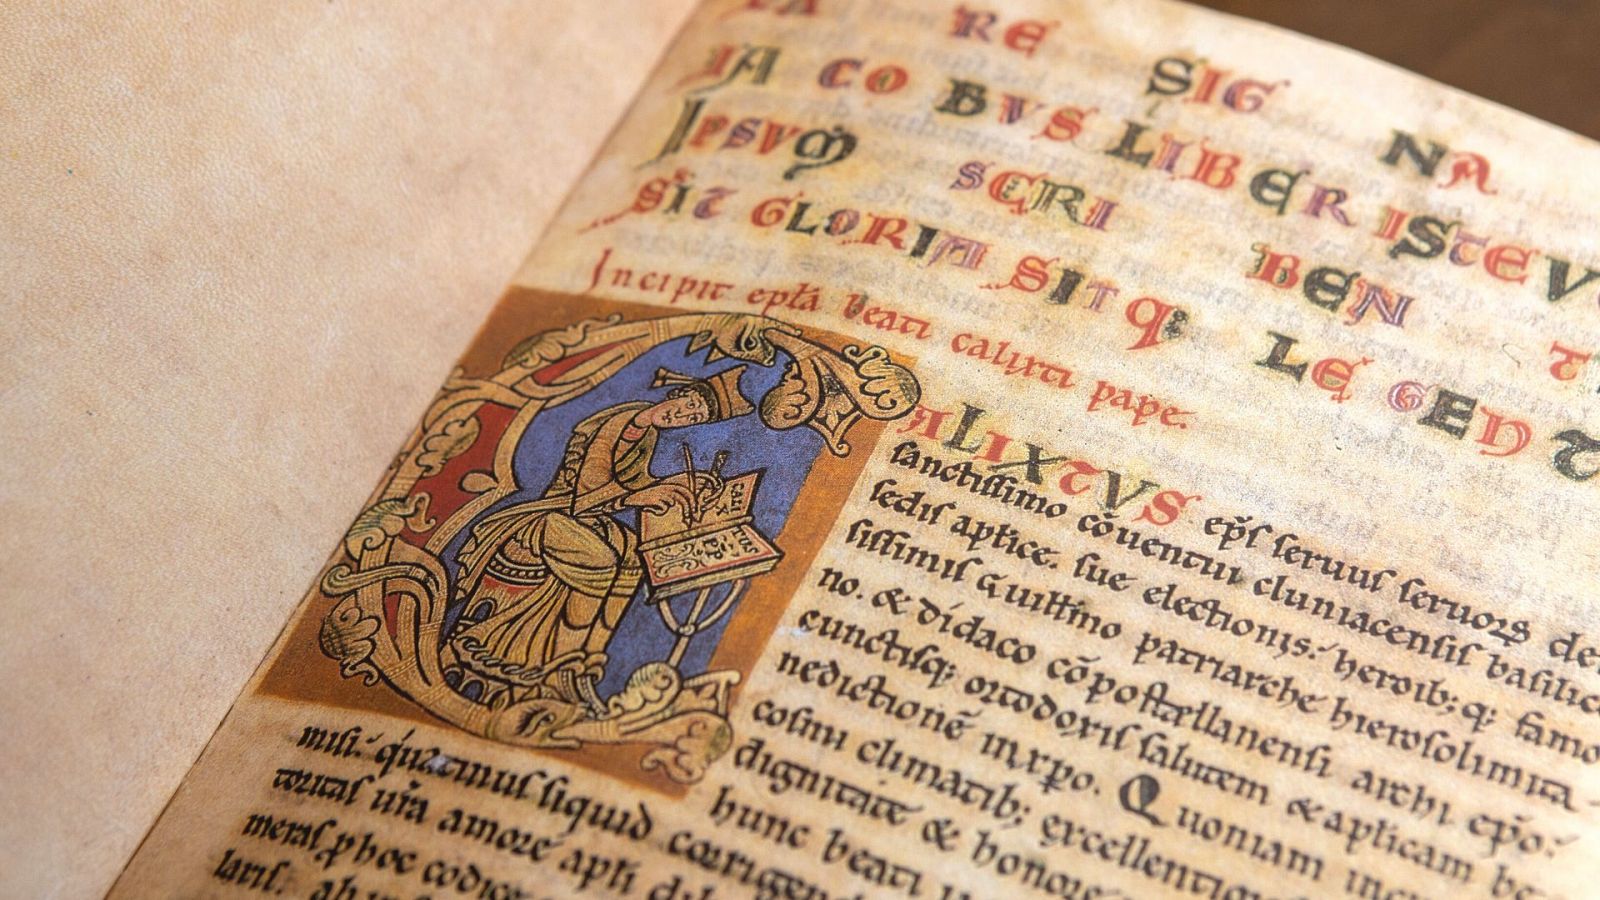 RE SIG NA
IACOBUS LIBER ISTE V
IPSVM SCRI BEN T
SIT GLORIA SITQ; LE GEN T
Incipit epła beati calixti pape.
CALI
X
TUS
PP
ALIXTVS ep̃s seruus seruoꝝ de
sanctissimo cõuentui cluniacensis basilice
sedis aptłice. sue electionis: heroib; q; famo
sissimis Guiłłmo patriarche hierosolimita
no. & didaco cõpostellanensi archi ep̃o:
cunctisq; ortodoxis salutem & aptłicam be
nedictionẽ in xp̃o. Quoniam in
cosmi climatib; excellentio
dignitate & honore
hunc beati
misi: q̃tinus siquid corrigen
toritas ur̃a amore apłi
meras ꝑ hoc codic
laris: